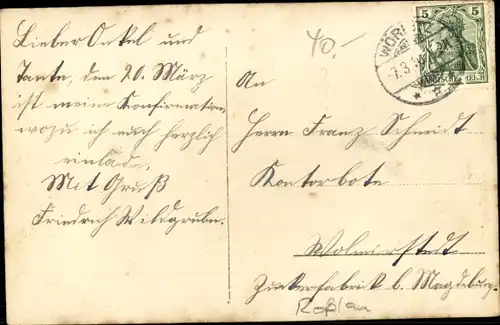 Lieber Onkel und
Tante, den 20. März
ist meine Konfirmation,
wozu ich euch herzlich
einlade.
Mit Gruß
Friedrich Wildgrube.
40.-
5 5
WÖRL
7.3.
REICH
An
Herrn Franz Schmidt
Kontorbote
Wolmirstedt
Zuckerfabrik b. Magdeburg.
Roßlau